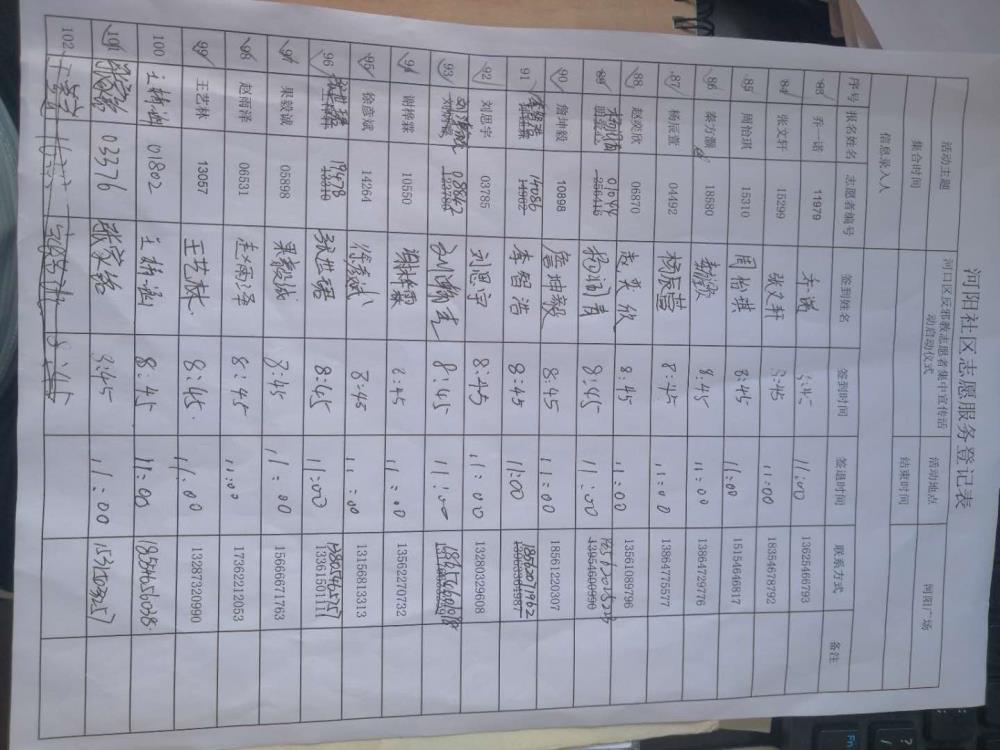 河阳社区志愿服务登记表
活动主题 河口区反邪教志愿者集中宣传活动启动仪式 活动地点 河阳广场
集合时间 结束时间
信息录入人
序号 报名姓名 志愿者编号 签到姓名 签到时间 签退时间 联系方式 备注
83 乔一诺 11979 11:00 13625466793
84 张文轩 15299 张文轩 8:45 11:00 18354678792
85 周怡琪 15310 周怡琪 8:45 11:00 15154646817
86 秦方灏 18580 8:45 11:00 13864729776
87 杨辰萱 04492 杨辰萱 8:45 11:00 13864775577
88 赵奕欣 06870 赵奕欣 8:45 11:00 13561089796
89 01044 8:45 11:00
90 詹坤毅 10898 詹坤毅 8:45 11:00 18561220307
91 李智浩 14086 14962 李智浩 8:45 11:00 18562071962
92 刘思宇 03785 刘思宇 8:45 11:00 13280329608
93 08842 8:45 11:00
94 谢桦霖 10550 谢桦霖 8:45 11:00 13562270732
95 徐彦斌 14264 徐彦斌 8:45 11:00 13156813313
96 19478 13310 8:45 11:00 13361501111
97 果毅诚 05898 果毅诚 8:45 11:00 15666671763
98 赵雨泽 06531 赵雨泽 8:45 11:00 17362212053
99 王艺林 13057 王艺林 8:45 11:00 13287320990
100 01802 8:45 11:00 18554656028
101 张家铭 03376 张家铭 8:45 11:00
102 8:45
Fn